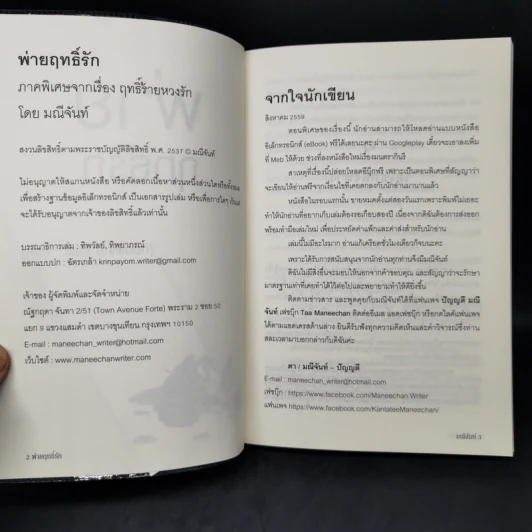 พ่ายฤทธิ์รัก
ภาคพิเศษจากเรื่อง ฤทธิ์ร้ายหวงรัก
โดย มณีจันท์
สงวนลิขสิทธิ์ตามพระราชบัญญัติลิขสิทธิ์ พ.ศ. 2537 © มณีจันท์
ไม่อนุญาตให้สแกนหนังสือ หรือคัดลอกเนื้อหาส่วนหนึ่งส่วนใดหรือทั้งหมด
เพื่อสร้างฐานข้อมูลอิเล็กทรอนิกส์ เป็นเอกสารรูปเล่ม หรือเพื่อการใดๆ เว้นแต่
จะได้รับอนุญาตจากเจ้าของลิขสิทธิ์แล้วเท่านั้น
บรรณาธิการเล่ม : ทิพวัลย์, ทิพยาภรณ์
ออกแบบปก : ฉัตรเกล้า krinpayom.writer@gmail.com
เจ้าของ ผู้จัดพิมพ์และจัดจำหน่าย
ณัฐกฤตา จันทา 2/51 (Town Avenue Forte) พระราม 2 ซอย 50
แยก 8 แขวงแสมดำ เขตบางขุนเทียน กรุงเทพฯ 10150
E-mail : maneechan_writer@hotmail.com
เว็บไซต์ : www.maneechanwriter.com
2 พ่ายฤทธิ์รัก
จากใจนักเขียน
สิงหาคม 2559
ตอนพิเศษของเรื่องนี้ นักอ่านสามารถไปโหลดอ่านแบบหนังสือ
อิเล็กทรอนิกส์ (eBook) ฟรีได้เลยนะคะ ผ่าน Googleplay เดี๋ยวจะเอาลงเพิ่ม
ที่ Meb ให้ด้วย ช่วงที่ลงหนังสือใหม่เรื่องเมนตรากินรี
สาเหตุที่เรื่องนี้ปล่อยโหลดอีบุ๊กฟรี เพราะเป็นตอนพิเศษที่สัญญาว่า
จะเขียนให้อ่านฟรีจากเงื่อนไขที่เคยตกลงกับนักอ่านมานานแล้ว
หนังสือในรอบแรกนั้น ขายหมดตั้งแต่สองวันแรกเพราะพิมพ์ไม่เยอะ
ทำให้นักอ่านที่อยากเก็บเล่มต้องรอเกือบสองปี เนื่องจากดิฉันต้องการส่งออก
พร้อมทำมือเล่มใหม่ เพื่อประหยัดค่าแพ็กและค่าส่งสำหรับนักอ่าน
เล่มนี้ไม่มีอะไรมาก อ่านแก้เครียดชั่วโมงเดียวก็จบนะคะ
เพราะได้รับการสนับสนุนจากนักอ่านทุกท่านจึงมีมณีจันท์
ดิฉันไม่มีสิ่งอื่นจะมอบให้นอกจากคำขอบคุณ และสัญญาว่าจะรักษา
มาตรฐานเท่าที่เคยทำไว้ได้ต่อไปและพยายามทำให้ดียิ่งขึ้น
ติดตามข่าวสาร และพูดคุยกับมณีจันท์ได้ที่แฟนเพจ ปัญญดี มณี
จันท์ เฟซบุ๊ก Taa Maneechan ติดต่ออีเมล แอดเฟซบุ๊ก หรือกดไลค์แฟนเพจ
ได้ตามแอดเดรสด้านล่าง ยินดีรับฟังทุกความคิดเห็นและคำวิจารณ์ซึ่งท่าน
สละเวลามาบอกกล่าวกับดิฉันค่ะ
ตา / มณีจันท์ – ปัญญดี
E-mail : maneechan_writer@hotmail.com
เฟซบุ๊ก : https://www.facebook.com/Maneechan.Writer
แฟนเพจ https://www.facebook.com/KantateeManeechan/
มณีจันท์ 3